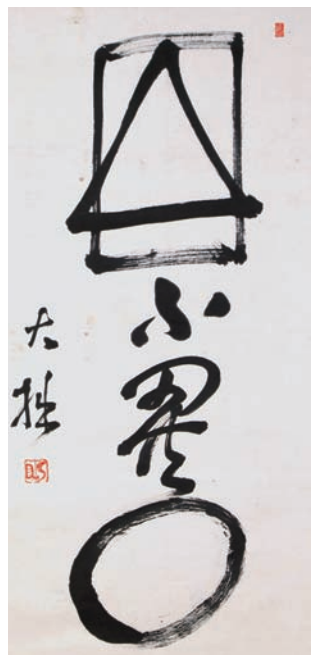 不異
大拙